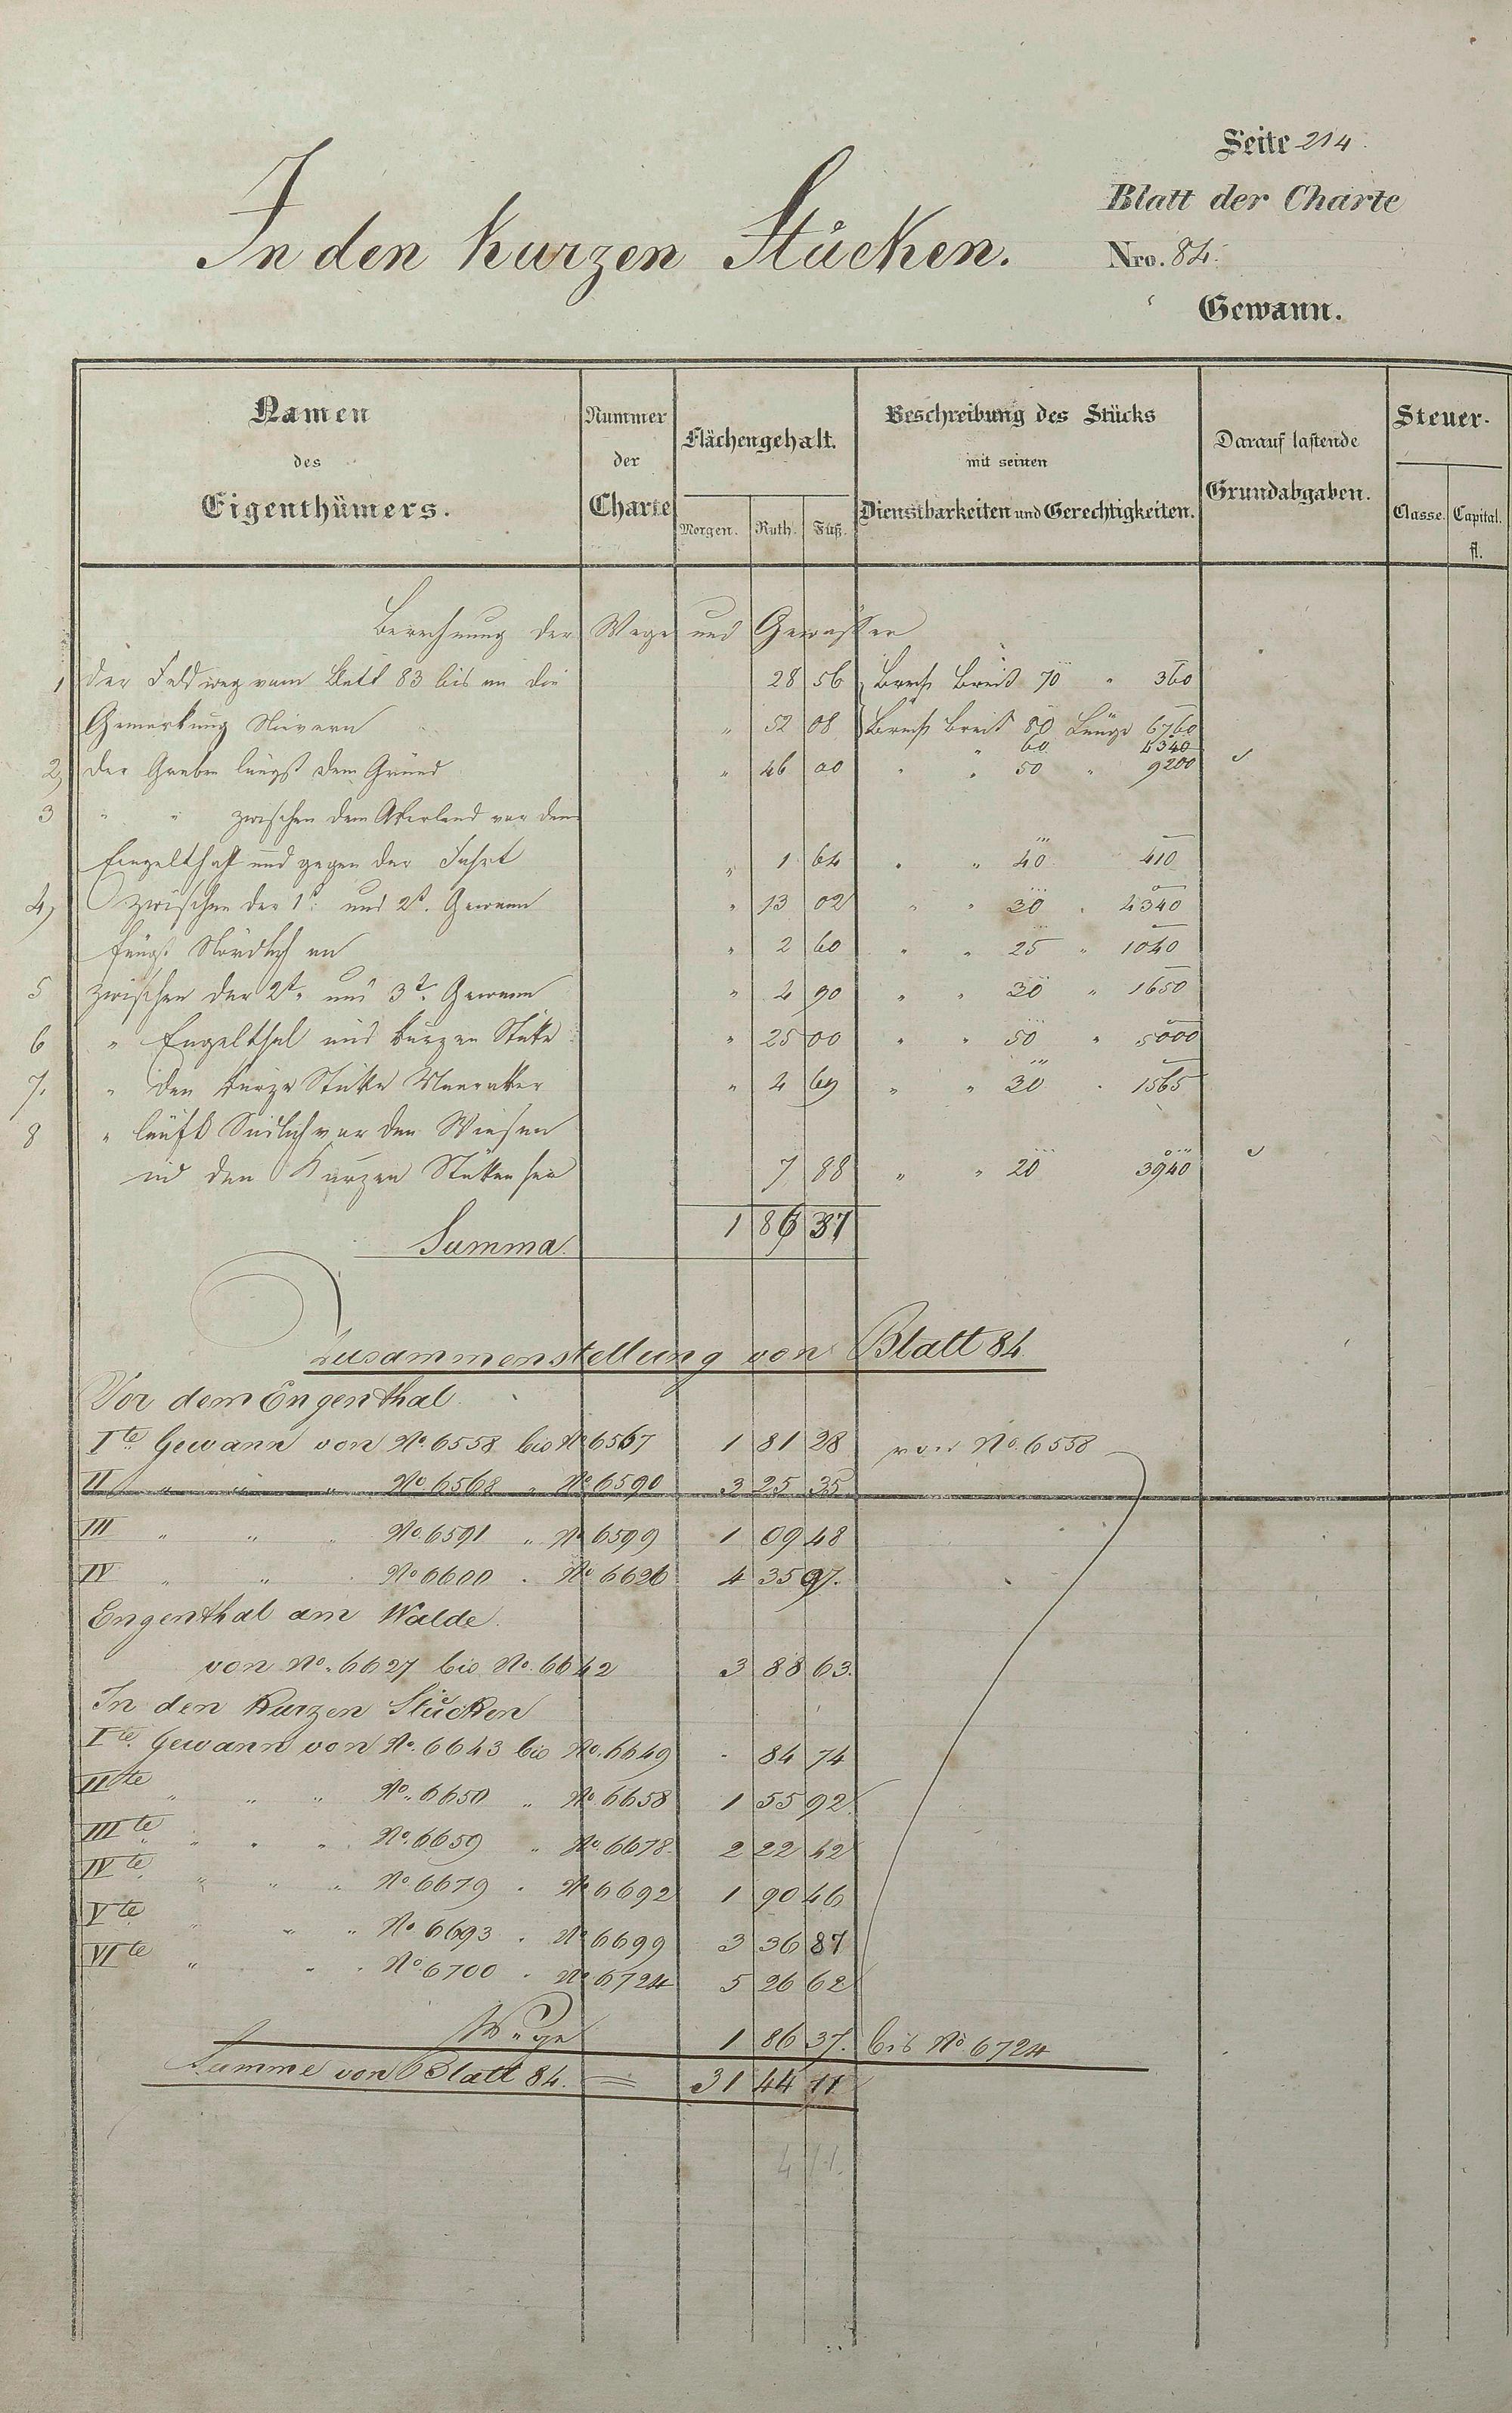 Seite 214.
Blatt der Charte
In den kurzen Stücken.
Nro. 84.
Gewann.
Namen des Eigenthümers.
Nummer der Charte
Flächengehalt.
Morgen. Ruth. Fuß.
Beschreibung des Stücks mit seinen Dienstbarkeiten und Gerechtigkeiten.
Darauf lastende Grundabgaben.
Steuer-
Classe. Capital. fl.
Berechnung der Wege und Gewässer
1 Der Feldweg vom Blatt 83 bis an die 28 56 Breit 70 " 360
Gemarkung Nievern " 52 08 Breit 80 Länge 6760
60 4340
2) Der Graben längst dem Grund " 46 00 " " 50 " 9200
3 " " zwischen dem Akerland vor dem
Engelthal und gegen der Fahrt " 1 64 " " 40 410
4) zwischen der 1t. und 2t. Gewann " 13 02 " " 30 " 4340
längst Nördlich an " 2 60 " " 25 " 1040
5 zwischen der 2t. und 3t. Gewann " 4 90 " " 30 " 1650
6 " Engelthal und kurzen Stüke " 25 00 " " 50 " 5000
7. " den kurze Stüke " 4 69 " " 30 " 1565
8 " läuft Südlich vor den Wiesen
in den Kurzen Stüken her 7 88 " " 20 3940
Summa 1 86 37
Zusammenstellung von Blatt 84.
Vor dem Engenthal
Ite Gewann von No. 6558 bis No 6567 1 81 28 von No. 6558
II " " " No 6568 " No 6590 3 25 35
III " " " No 6591 " No 6599 1 09 48
IV " " " No 6600 " No 6626 4 35 97.
Engenthal am Walde.
von No. 6627 bis No. 6642 3 88 63.
In den Kurzen Stücken
Ite Gewann von No. 6643 bis No. 6649 - 84 74
IIte " " " No. 6650 " No. 6658 1 55 92.
IIIte " " " No. 6659 " No. 6678 2 22 42
IVte " " " No 6679 " No 6692 1 90 46
Vte " " " No 6693 " No 6699 3 36 87
VIte " " " No 6700 " No 6724 5 26 62
Wege 1 86 37. bis No 6724
Summe von Blatt 84. = 31 44 11
4 11.